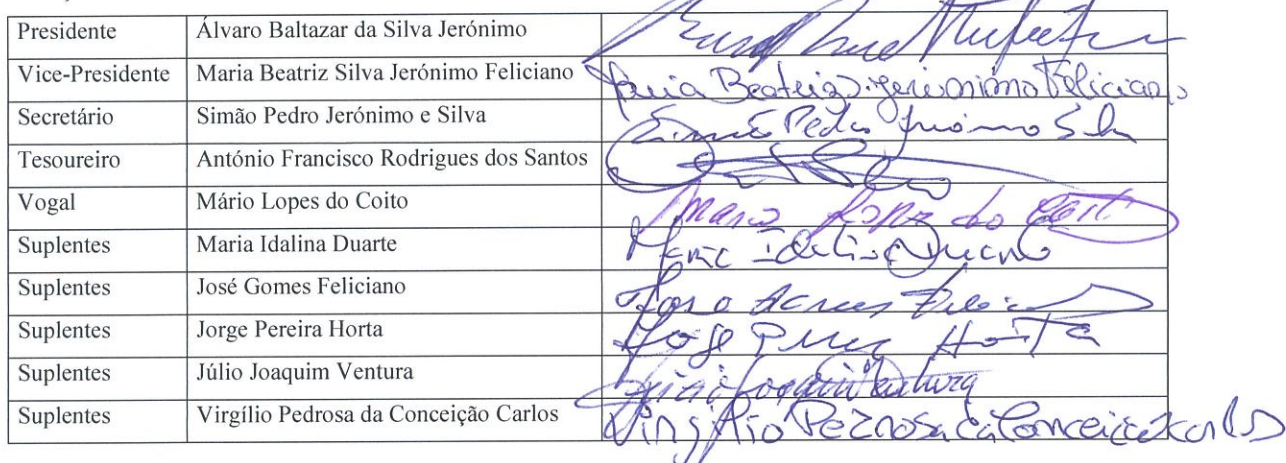 Presidente Álvaro Baltazar da Silva Jerónimo
Vice-Presidente Maria Beatriz Silva Jerónimo Feliciano Maria Beatriz S. Jerónimo Feliciano
Secretário Simão Pedro Jerónimo e Silva Simão Pedro Jerónimo Silva
Tesoureiro António Francisco Rodrigues dos Santos
Vogal Mário Lopes do Coito Mario Lopes do Coito
Suplentes Maria Idalina Duarte Maria Idalina Duarte
Suplentes José Gomes Feliciano
Suplentes Jorge Pereira Horta Horta
Suplentes Júlio Joaquim Ventura Joaquim Ventura
Suplentes Virgílio Pedrosa da Conceição Carlos Virgílio Pedrosa da Conceição Carlos